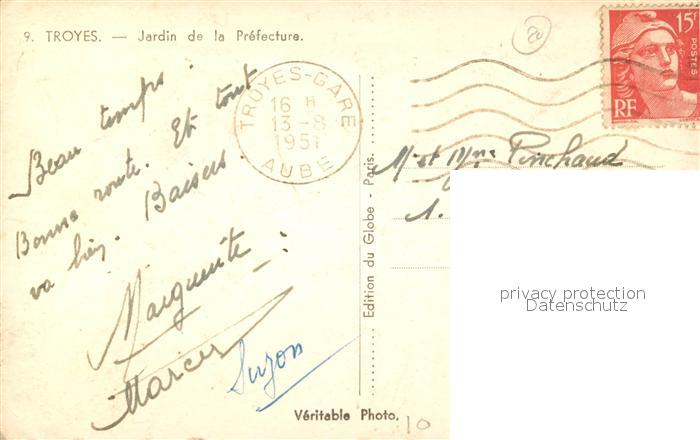 9. TROYES. — Jardin de la Préfecture.
Beau temps.
Bonne route. Et tout
va bien. Baisers.
Marguerite
Marcel
Suzon
TROYES-GARE
16 H
13-8
1951
AUBE
Edition du Globe - Paris.
Véritable Photo.
10
20
15F
POSTES
RF
M. et Mme Pinchaud
1.
privacy protection
Datenschutz